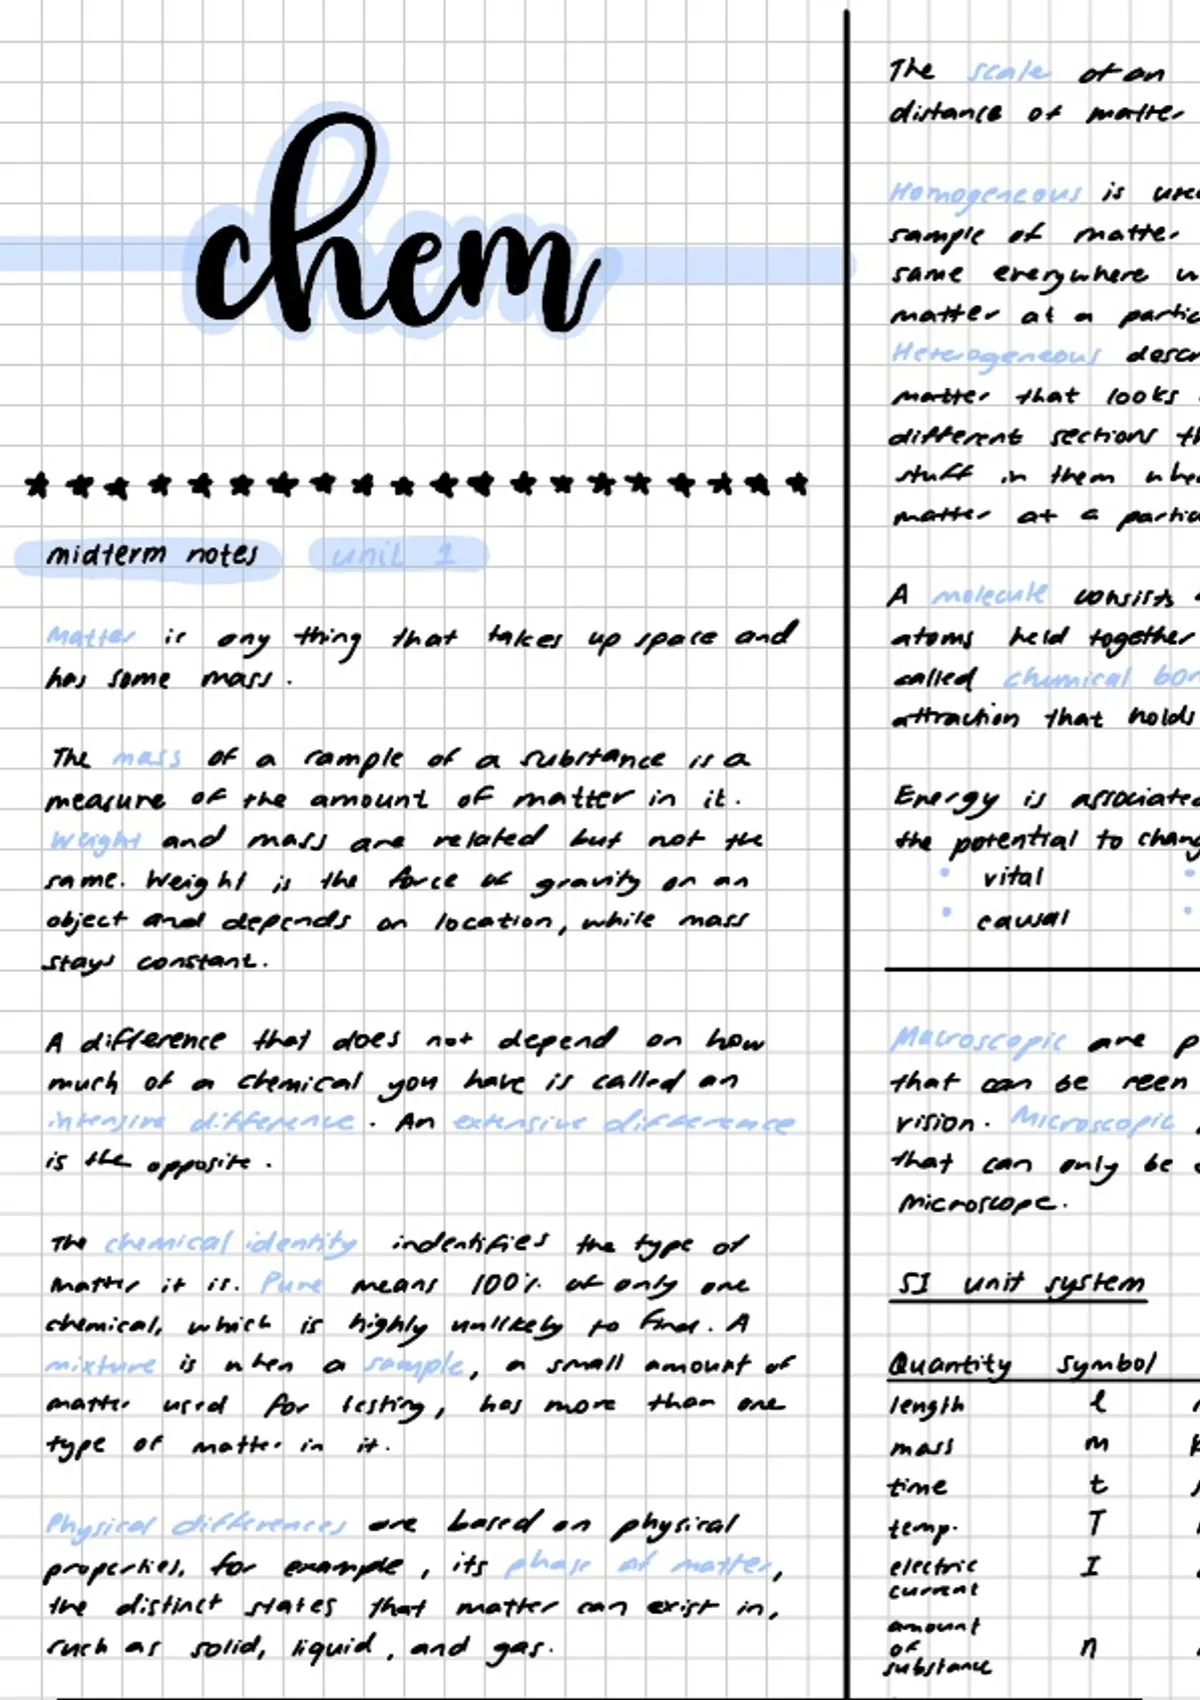 chem
midterm notes unit 1
Matter is any thing that takes up space and
has some mass.
The mass of a sample of a substance is a
measure of the amount of matter in it.
Weight and mass are related but not the
same. Weight is the force of gravity on an
object and depends on location, while mass
stays constant.
A difference that does not depend on how
much of a chemical you have is called an
intensive difference. An extensive difference
is the opposite.
The chemical identity indentifies the type of
matter it is. Pure means 100% of only one
chemical, which is highly unlikely to find. A
mixture is when a sample, a small amount of
matter used for testing, has more than one
type of matter in it.
Physical differences are based on physical
properties, for example, its phase of matter,
the distinct states that matter can exist in,
such as solid, liquid, and gas.
The scale of an
distance of matter
Homogeneous is
sample of matter
same everywhere
matter at a
Heterogeneous
matter that looks
different sections
stuff in them
matter at a
A molecule consists
atoms held together
called chemical
attraction that holds
Energy is associated
the potential to
vital
causal
Macroscopic are
that can be seen
vision. Microscopic
that can only be
microscope.
SI unit system
Quantity symbol
length l
mass m
time t
temp. T
electric I
current
amount
of n
substance